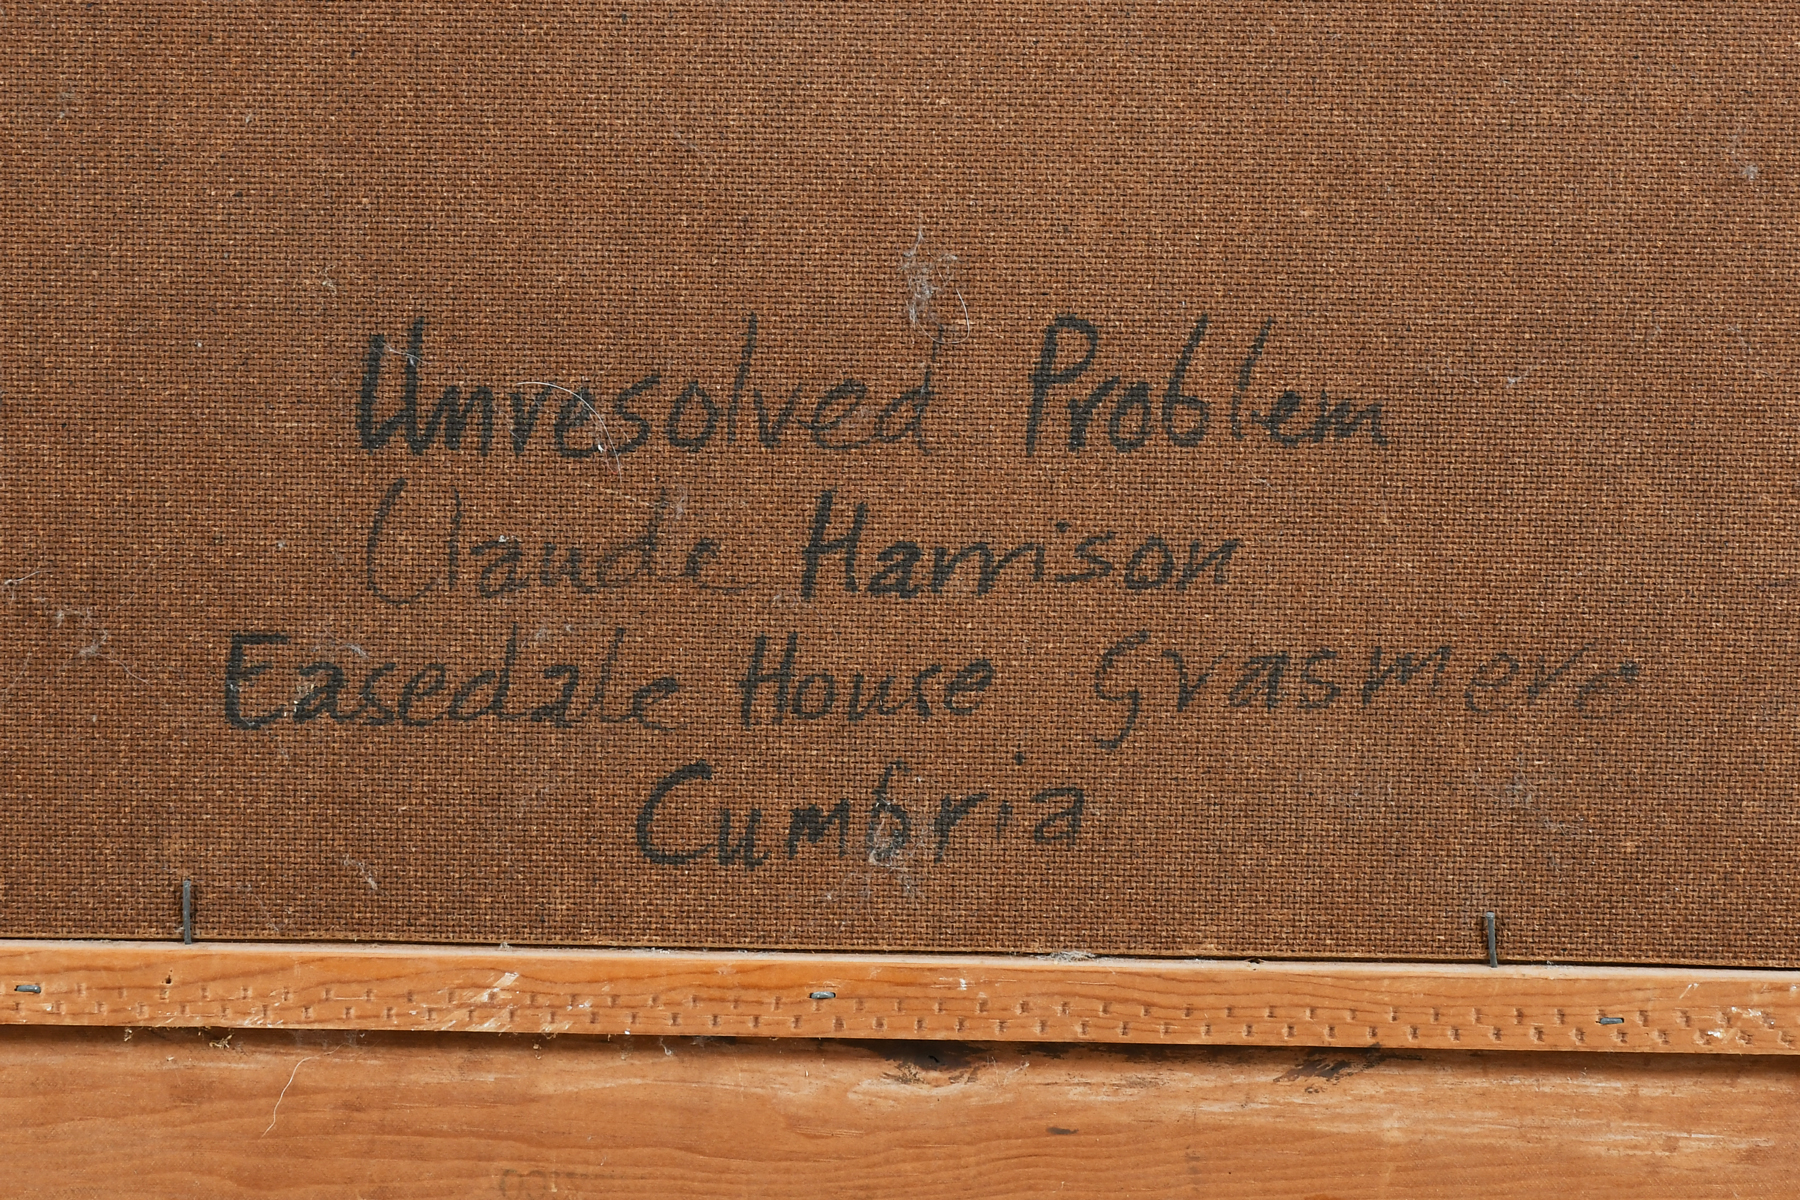 Unresolved Problem
Claude Harrison
Easedale House Grasmere
Cumbria